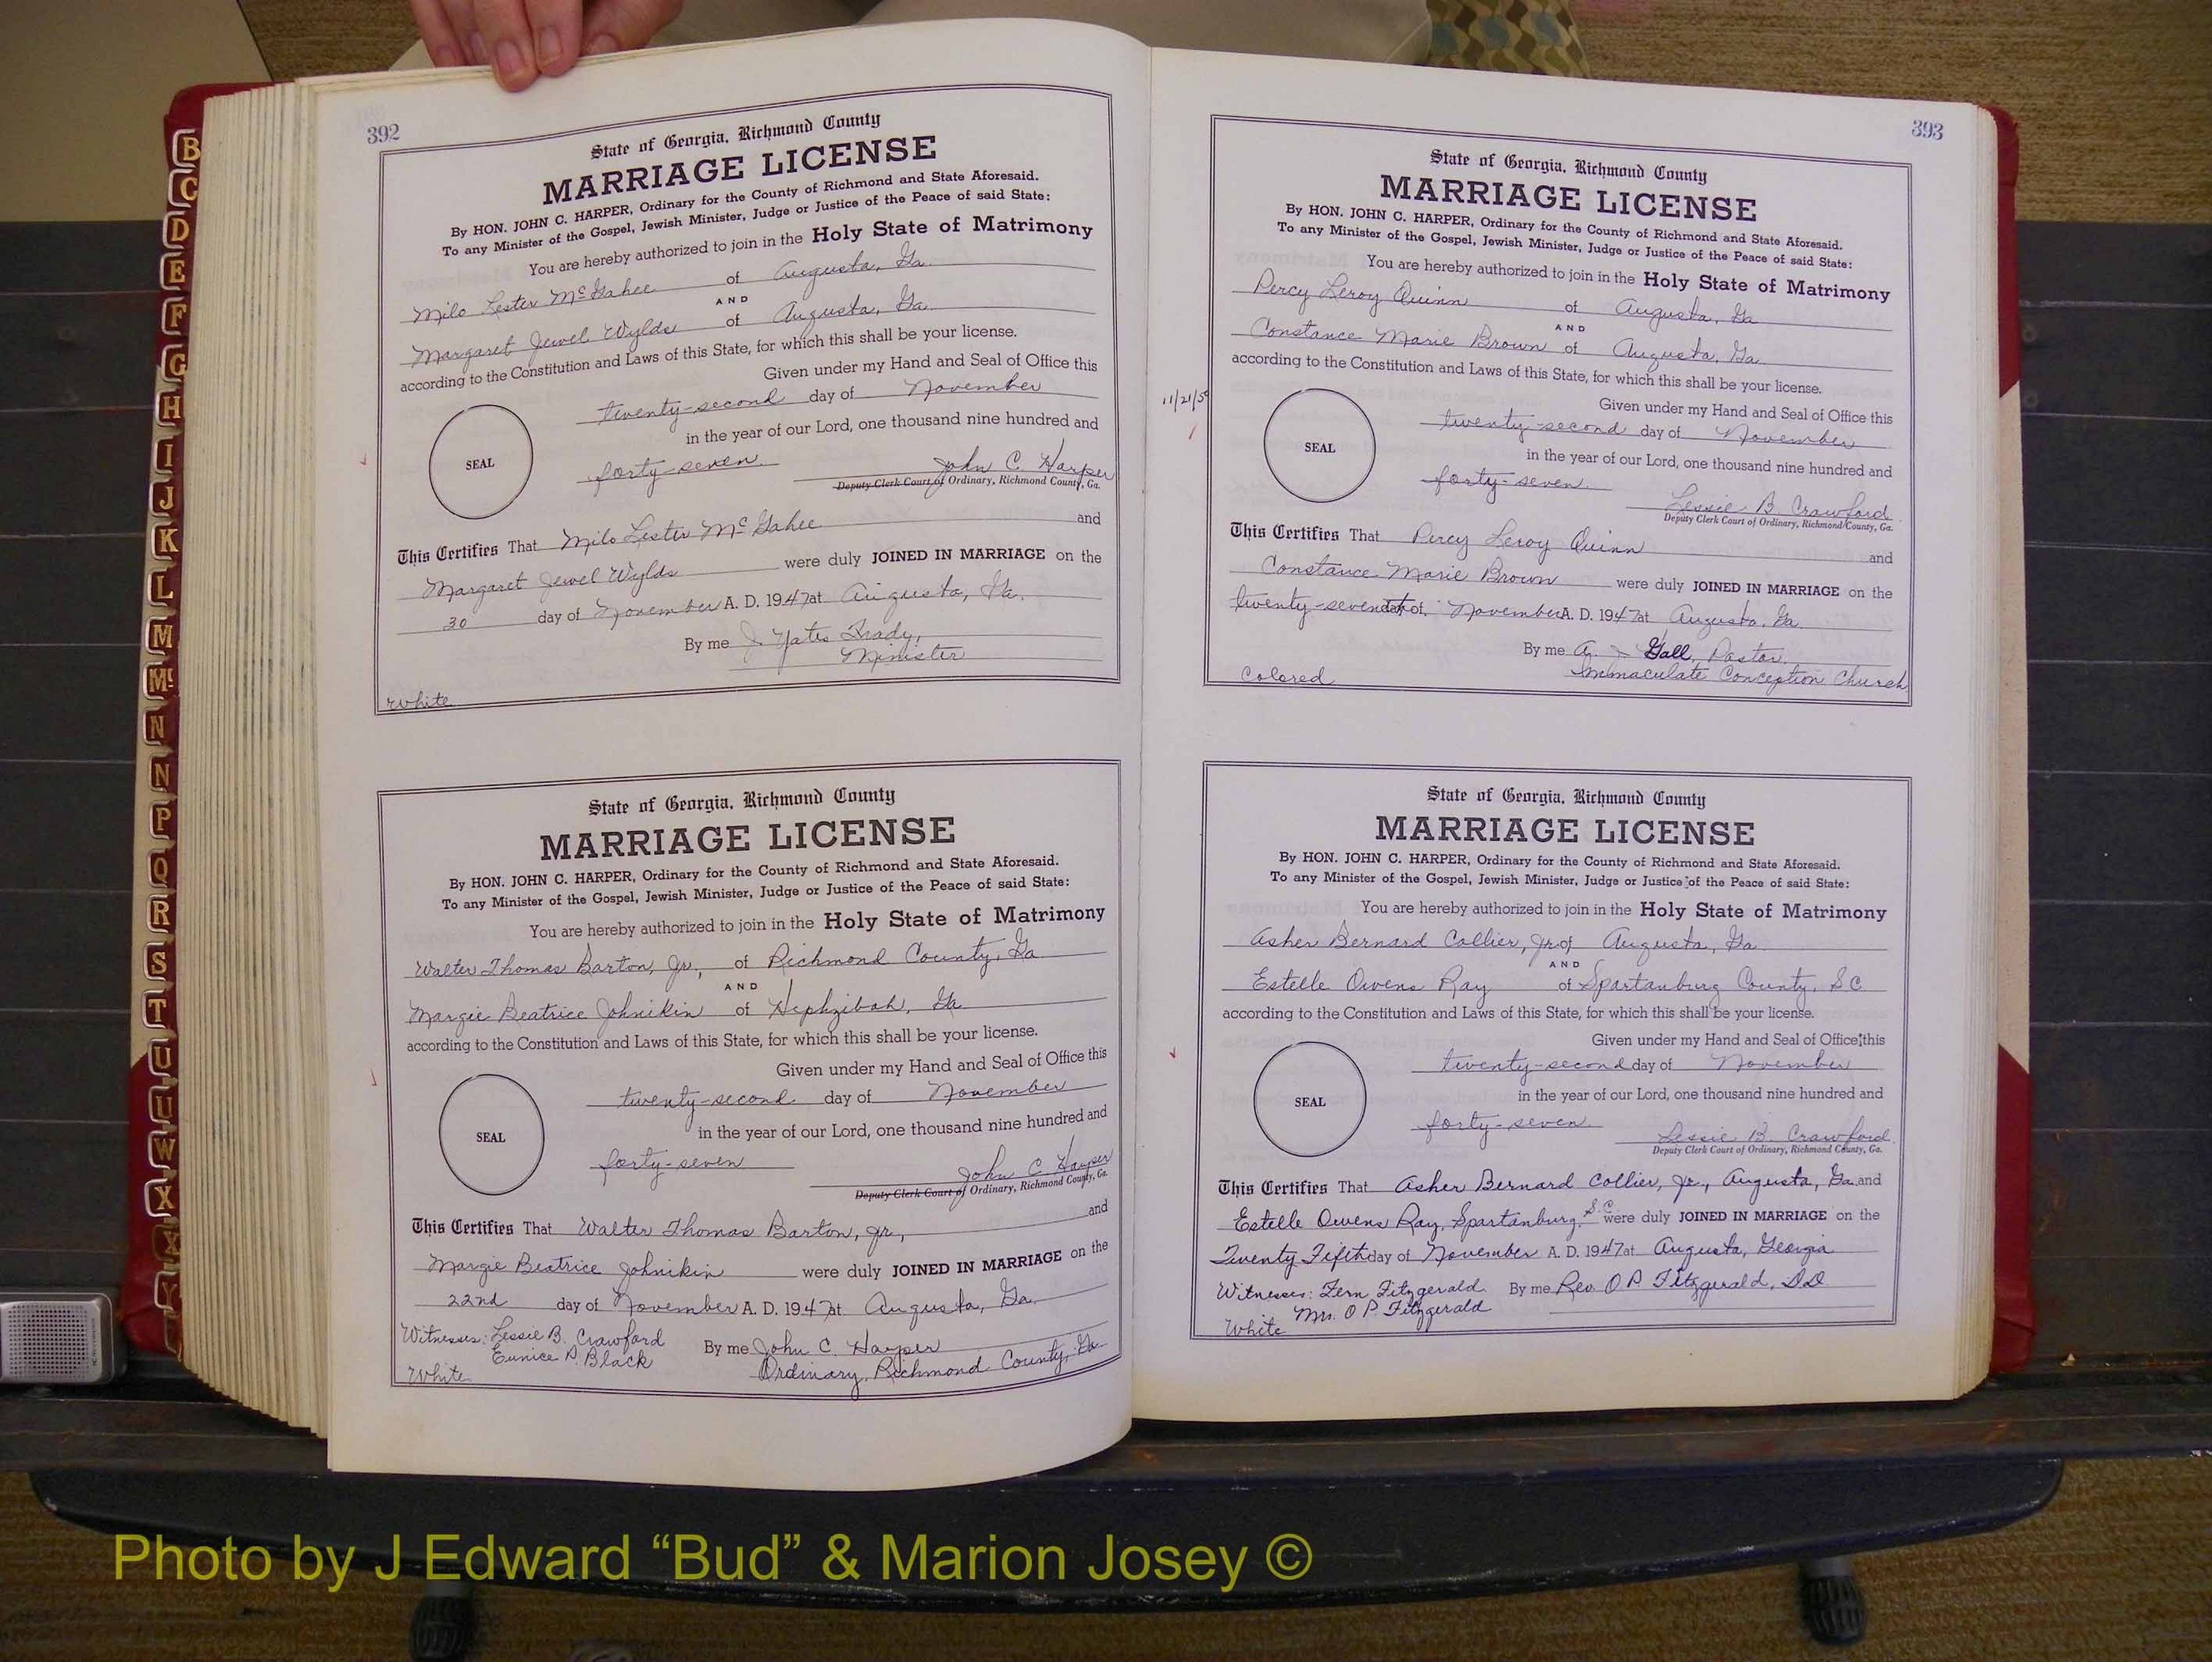 392
State of Georgia, Richmond County
MARRIAGE LICENSE
By HON. JOHN C. HARPER, Ordinary for the County of Richmond and State Aforesaid.
To any Minister of the Gospel, Jewish Minister, Judge or Justice of the Peace of said State:
You are hereby authorized to join in the Holy State of Matrimony
Milo Lester McGahee of Augusta, Ga.
AND
Margaret Jewel Wylds of Augusta, Ga.
according to the Constitution and Laws of this State, for which this shall be your license.
Given under my Hand and Seal of Office this
twenty-second day of November
in the year of our Lord, one thousand nine hundred and
SEAL
forty-seven.
John C. Harper
Deputy Clerk Court of Ordinary, Richmond County, Ga.
This Certifies That Milo Lester McGahee and
Margaret Jewel Wylds were duly JOINED IN MARRIAGE on the
30 day of November A. D. 1947 at Augusta, Ga.
By me J. Yates
Minister
White
State of Georgia, Richmond County
MARRIAGE LICENSE
By HON. JOHN C. HARPER, Ordinary for the County of Richmond and State Aforesaid.
To any Minister of the Gospel, Jewish Minister, Judge or Justice of the Peace of said State:
You are hereby authorized to join in the Holy State of Matrimony
Walter Thomas Barton, Jr., of Richmond County, Ga
AND
Margie Beatrice Johnikin of Hephzibah, Ga.
according to the Constitution and Laws of this State, for which this shall be your license.
Given under my Hand and Seal of Office this
twenty-second day of November
in the year of our Lord, one thousand nine hundred and
SEAL
forty-seven
John C. Harper
Deputy Clerk Court of Ordinary, Richmond County, Ga.
This Certifies That Walter Thomas Barton, Jr., and
Margie Beatrice Johnikin were duly JOINED IN MARRIAGE on the
22nd day of November A. D. 1947 at Augusta, Ga.
Witnesses: Lessie B. Crawford
Eunice P. Black
By me John C. Harper
Ordinary, Richmond County, Ga.
White
393
State of Georgia, Richmond County
MARRIAGE LICENSE
By HON. JOHN C. HARPER, Ordinary for the County of Richmond and State Aforesaid.
To any Minister of the Gospel, Jewish Minister, Judge or Justice of the Peace of said State:
You are hereby authorized to join in the Holy State of Matrimony
Percy Leroy Quinn of Augusta, Ga
AND
Constance Marie Brown of Augusta, Ga.
according to the Constitution and Laws of this State, for which this shall be your license.
Given under my Hand and Seal of Office this
twenty-second day of November
in the year of our Lord, one thousand nine hundred and
SEAL
forty-seven.
Lessie B. Crawford
Deputy Clerk Court of Ordinary, Richmond County, Ga.
This Certifies That Percy Leroy Quinn and
Constance Marie Brown were duly JOINED IN MARRIAGE on the
twenty-seventh day of November A. D. 1947 at Augusta, Ga.
By me A. J Gall, Pastor.
Immaculate Conception Church
Colored
State of Georgia, Richmond County
MARRIAGE LICENSE
By HON. JOHN C. HARPER, Ordinary for the County of Richmond and State Aforesaid.
To any Minister of the Gospel, Jewish Minister, Judge or Justice of the Peace of said State:
You are hereby authorized to join in the Holy State of Matrimony
Asher Bernard Collier, Jr. of Augusta, Ga.
AND
Estelle Owens Ray of Spartanburg County, S.C.
according to the Constitution and Laws of this State, for which this shall be your license.
Given under my Hand and Seal of Office this
twenty-second day of November
in the year of our Lord, one thousand nine hundred and
SEAL
forty-seven
Lessie B. Crawford
Deputy Clerk Court of Ordinary, Richmond County, Ga.
This Certifies That Asher Bernard Collier, Jr., Augusta, Ga. and
Estelle Owens Ray, Spartanburg, S.C. were duly JOINED IN MARRIAGE on the
Twenty Fifth day of November A. D. 1947 at Augusta, Georgia
Witnesses: Fern Fitzgerald By me Rev. O P. Fitzgerald, D.D
Mrs. O P. Fitzgerald
White
B
C
D
E
F
G
H
I
J
K
L
M
Mc
N
N
P
Q
R
S
T
U
U
W
X
X
Y
Photo by J Edward “Bud” & Marion Josey ©